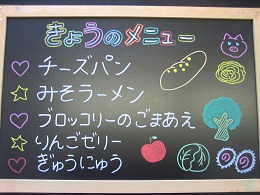 きょうのメニュー
チーズパン
みそラーメン
ブロッコリーのごまあえ
りんごゼリー
ぎゅうにゅう